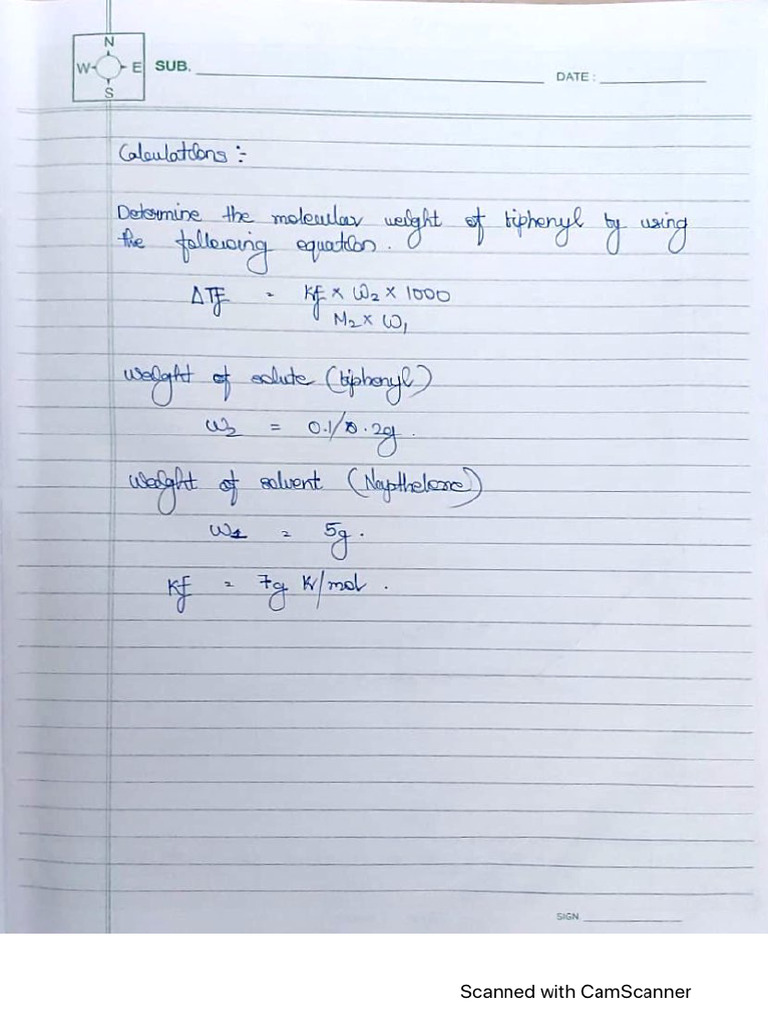 N
W E SUB.
S
DATE :
Calculations :-
Determine the molecular weight of biphenyl by using
the following equation.
ΔTf = Kf × W2 × 1000
M2 × W1
Weight of solute (biphenyl)
W2 = 0.1/0.2g.
Weight of solvent (Napthelene)
W1 = 5g.
Kf = 7g K/mol.
SIGN.
Scanned with CamScanner